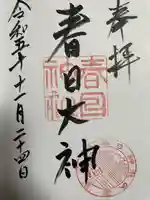 奉拝
春日大神
令和五年十一月二十四日
春日
神社